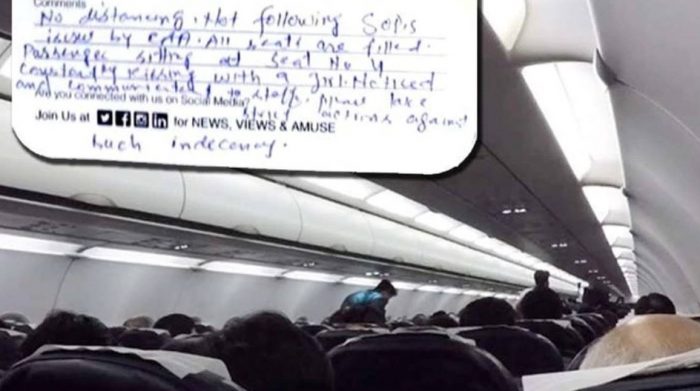 Comments
No distancing. Not following SOPs
issued by CAA. All seats are filled.
Passenger sitting at seat No 4
constantly kissing with a girl. Noticed
and communicated to staff. Please take
Are you connected with us on Social Media?
strict actions against
Join Us at in for NEWS, VIEWS & AMUSE
such indecency.